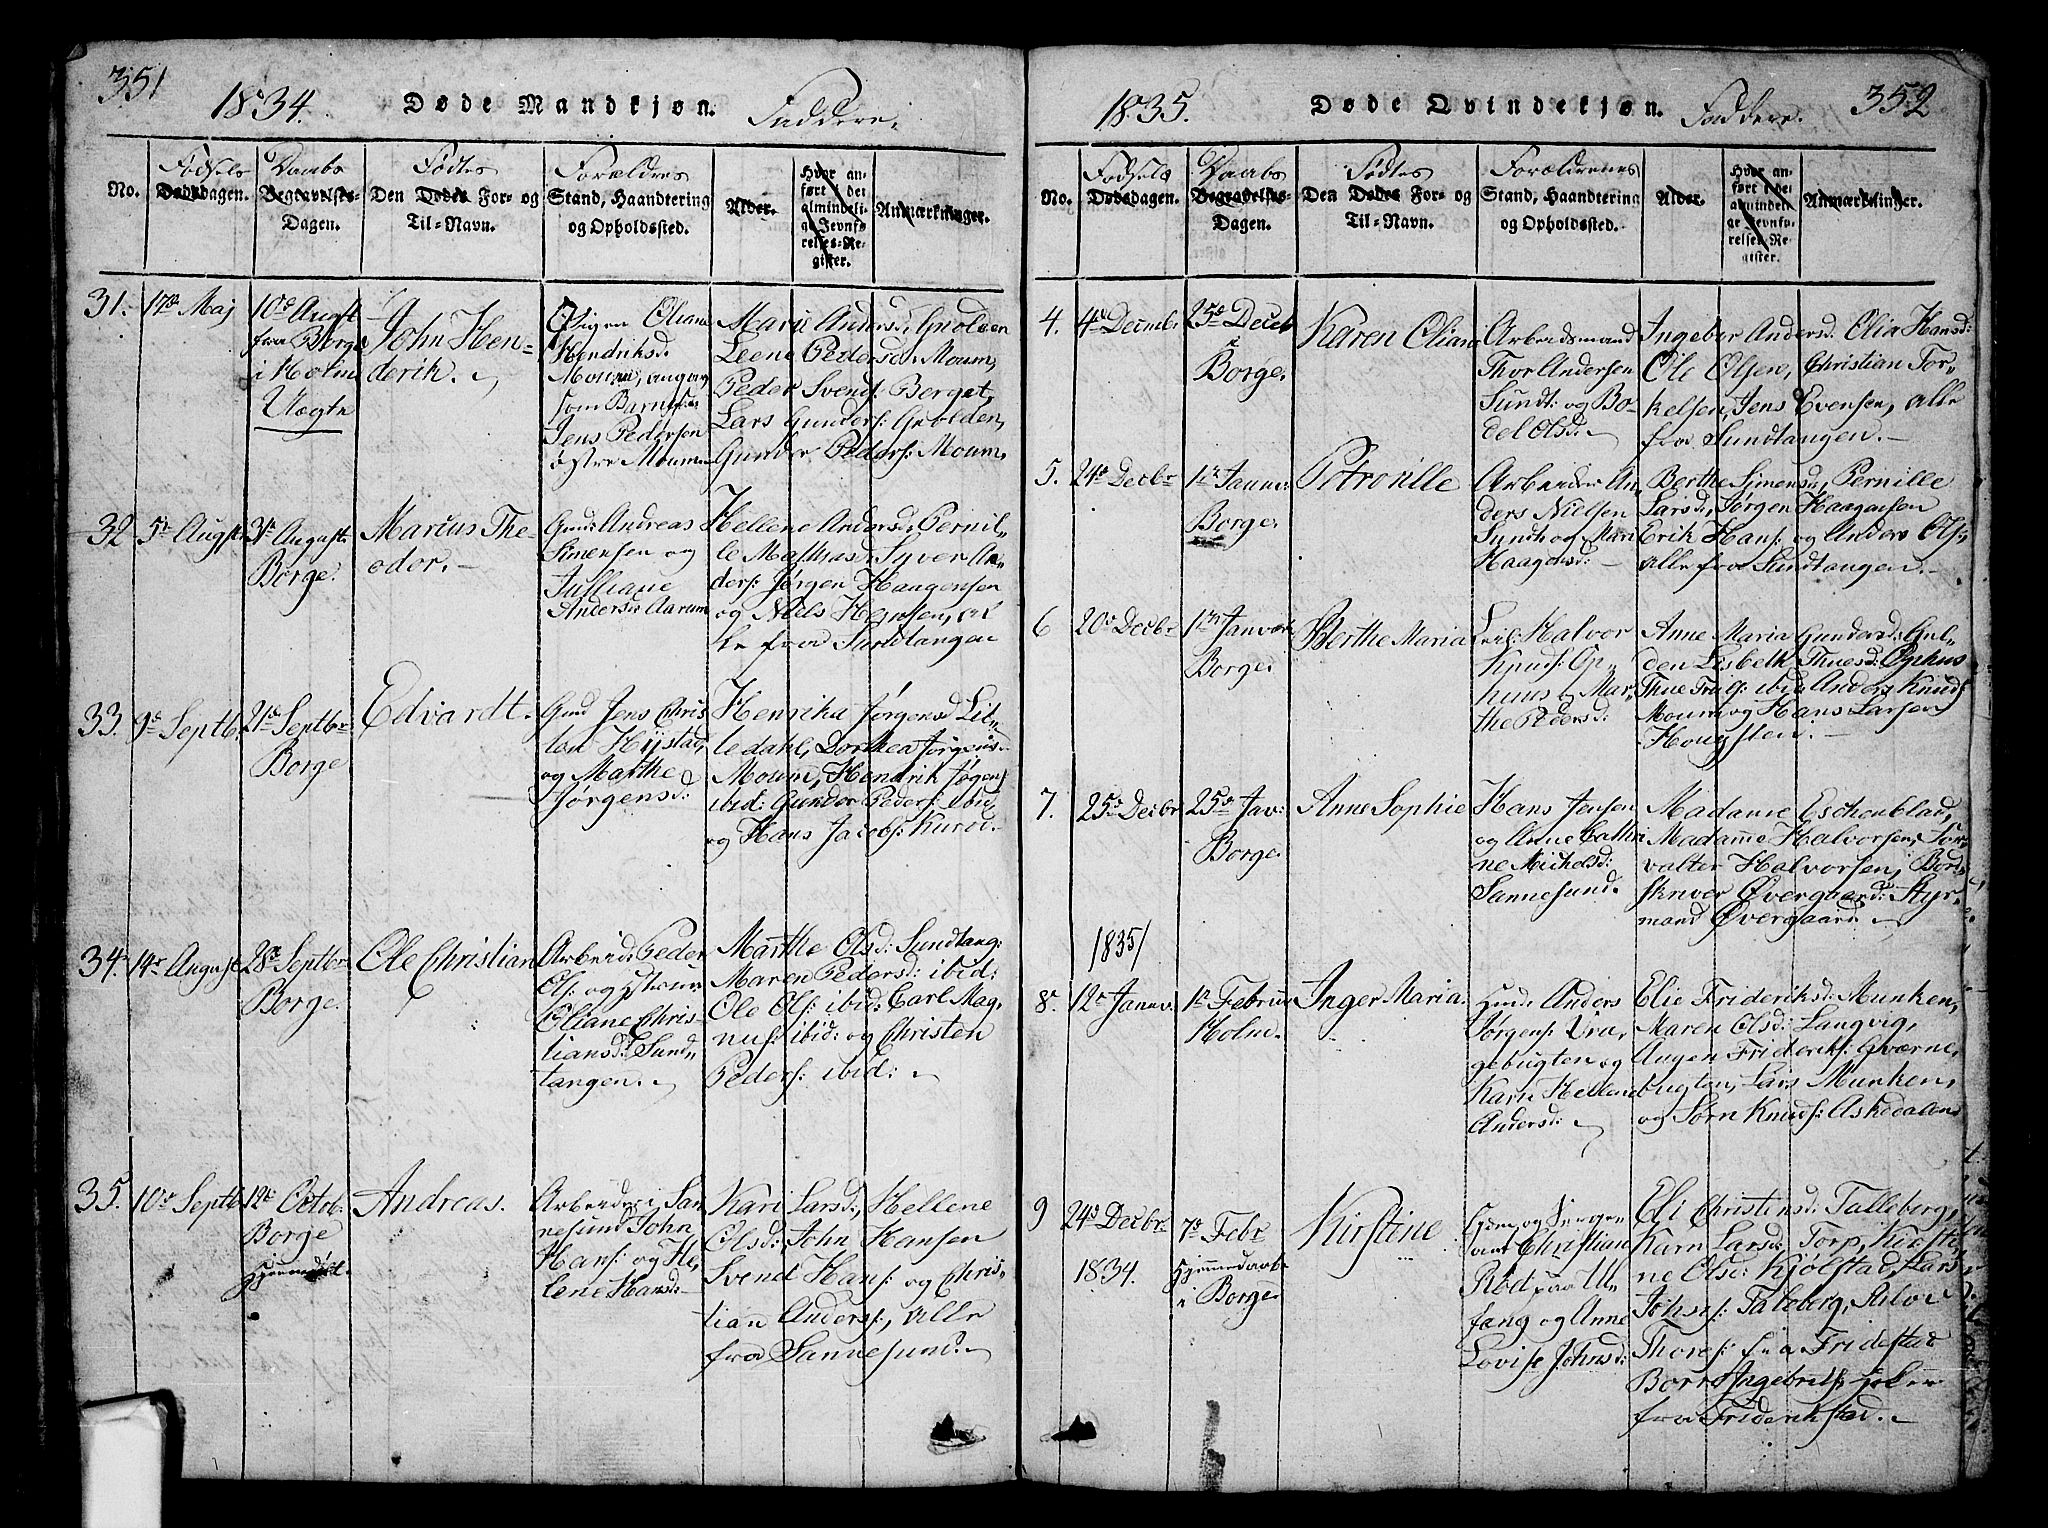 351
1834.
Døde Mandkjøn.
Faddere.
No.
Fødsels
Dødsdagen.
Daabs
Begravelses-
Dagen.
Fødtes
Den Dødes For- og
Til-Navn.
Forældres
Stand, Haandtering
og Opholdssted.
Alder.
Hvor an-
ført i det
almindeli-
ge Jevnfø-
relses-Re-
gister.
Anmærkninger.
31.
17de Maj
10de Augst
fra Borge
i Holm
Uægte
John Hen-
derik.
Pigen Oliane
Hendriksd.
Moum, angav
som Barnefader
Jens Pedersen
østre Moum
Marie Andersd:
Leene Pedersd. Moum,
Peder Svends: Berget,
Lars Gunders:
Gunder Peders: Moum,
32
5te August
31te August
Borge.
Marcus The-
odor.
Gmd: Andreas
Simensen og
Julliane
Andersd: Aarum
Hellene Andersd: Pernil-
le Mathiasd: Syver An-
ders: Jørgen Haagensen
og Niels Hansen, al
le fra Sundtangen
33.
9de Septb.
21de Septbr
Borge
Edvardt.
Gmd Jens Chris
ten Hijstad,
og Marthe
Jørgensd:
Henrika Jørgensd Lil-
ledahl, Dorthea Jørgensd.
Moum, Hendrik Jøgens
ibid: Gunder Peders: ibid,
og Hans Jacobs: Kurød.
34.
14de August
28de Septbr
Borge.
Ole Christian
Arbeid: Peder
Ols: og Hustrue
Oliane Chris-
tiansd: Sund-
tangen.
Marthe Olsd: Sundtang:
Maren Pedersd: ibid:
Ole Ols: ibid: Carl Mag-
nus: ibid: og Christen
Peders: ibid:
35.
10de Septb.
12te Octob.
Borge
hjemmedøbt.
Andreas.
Arbeider i San-
nesund John
Hans: og He-
lene Hansd:
Kari Larsd:, Hellene
Olsd: John Hansen
Svend Hans: og Chris-
tian Anders:, alle
fra Sannesund.
1835.
Døde Qvindekjøn.
Faddere.
352
No.
Fødsels
Dødsdagen.
Daabs
Begravelses-
Dagen.
Fødtes
Den Dødes For- og
Til-Navn.
Forældrenes
Stand, Haandtering
og Opholdssted.
Alder.
Hvor an-
ført i det
almindeli-
ge Jevnfø-
relses-Re-
gister.
Anmærkninger.
4.
4de Decmbr
25de Decb
i
Borge.
Karen Oliane
Arbeidsmand
Thor Andersen
Sundt: og Bo-
del Olsd:
Ingebor Andersd: Elia Hansd:
Ole Olsen, Christian Tor-
kelsen, Jens Evensen, alle
fra Sundtangen.
5.
24de Decbr
1te Januar:
Borge
Petronille
Arbeider An-
ders Nielsen
Sundt og Mari
Haagensd:
Berthe Simensd: Pernille
Larsd:, Jørgen Haagensen
Erik Hans: og Anders Ols:
alle fra Sundtangen.
6
20de Decbr
1te Januar
Borge
Berthe Maria
Leil: Halvor
Knuds: Op-
huus og Mar-
the Pedersd:
Anne Maria Gundersd: Gul-
den Lisbeth Thuesd: Ophus
Thue Truls: ibid: Anders Knuds
Moum og Hans Larsen
Hougsten.
7.
25de Decbr
25de Jav:
Borge
Anne Sophie
Hans Jensen
og Anne Cathri
ne Michelsd:
Sannesund.
Madame Eschenblad,
Madamme Halvorsen, For-
valter Halvorsen, Bord-
skriver Øvergaard: Styr-
mand Øvergaard.
1835/
8.
12te Januar.
1te Februar
Holm.
Inger Maria.
Gmd: Anders
Jørgens:
gebugten og
Kari Hellene
Andersd:
Elie Frideriksd: Munken,
Maren Olsd: Langvig,
Aagen Frideriks: Qværne-
bugten, Lars Munken,
og Sørn Knuds: Askedalen
9
24de Decbr.
1834.
7de Febr
hjemmedøbt
i Borge
Kirstine
Christiane
Rød paa U-
fang og Anne
Lovise Johnsd:
Eli Christensd: Talleberg,
Karn Larsd: Torp, Kirsti-
ne Olsd: Kjølstad, Lars
Johnsd: Taleberg, Salve
Thores: fra Fridestad
Ingebrits:
fra Friderikstad.